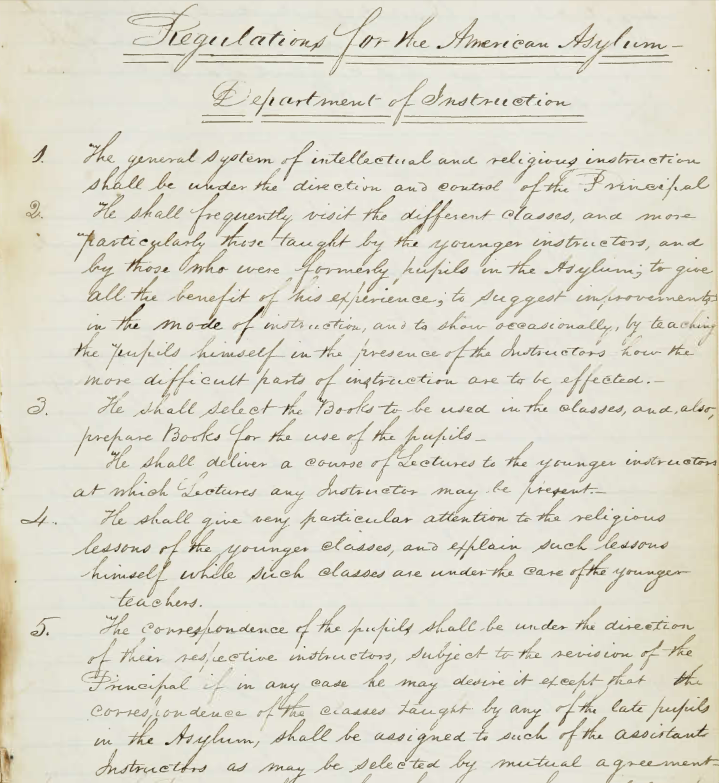 Regulations for the American Asylum—
Department of Instruction
1. The general system of intellectual and religious instruction
shall be under the direction and control of the Principal
2. He shall frequently visit the different classes, and more
particularly those taught by the younger instructors, and
by those who were formerly pupils in the Asylum; to give
all the benefit of his experience; to suggest improvements
in the mode of instruction, and to show occasionally, by teaching
the pupils himself in the presence of the Instructors how the
more difficult parts of instruction are to be effected.—
3. He shall select the Books to be used in the classes, and, also,
prepare Books for the use of the pupils—
He shall deliver a course of Lectures to the younger instructors
at which Lectures any Instructor may be present.—
4. He shall give very particular attention to the religious
lessons of the younger classes, and explain such lessons
himself while such classes are under the care of the younger
teachers.
5. The correspondence of the pupils shall be under the direction
of their respective instructors, subject to the revision of the
Principal if in any case he may desire it except that the
correspondence of the classes taught by any of the late pupils
in the Asylum, shall be assigned to such of the assistant
Instructors as may be selected by mutual agreement—